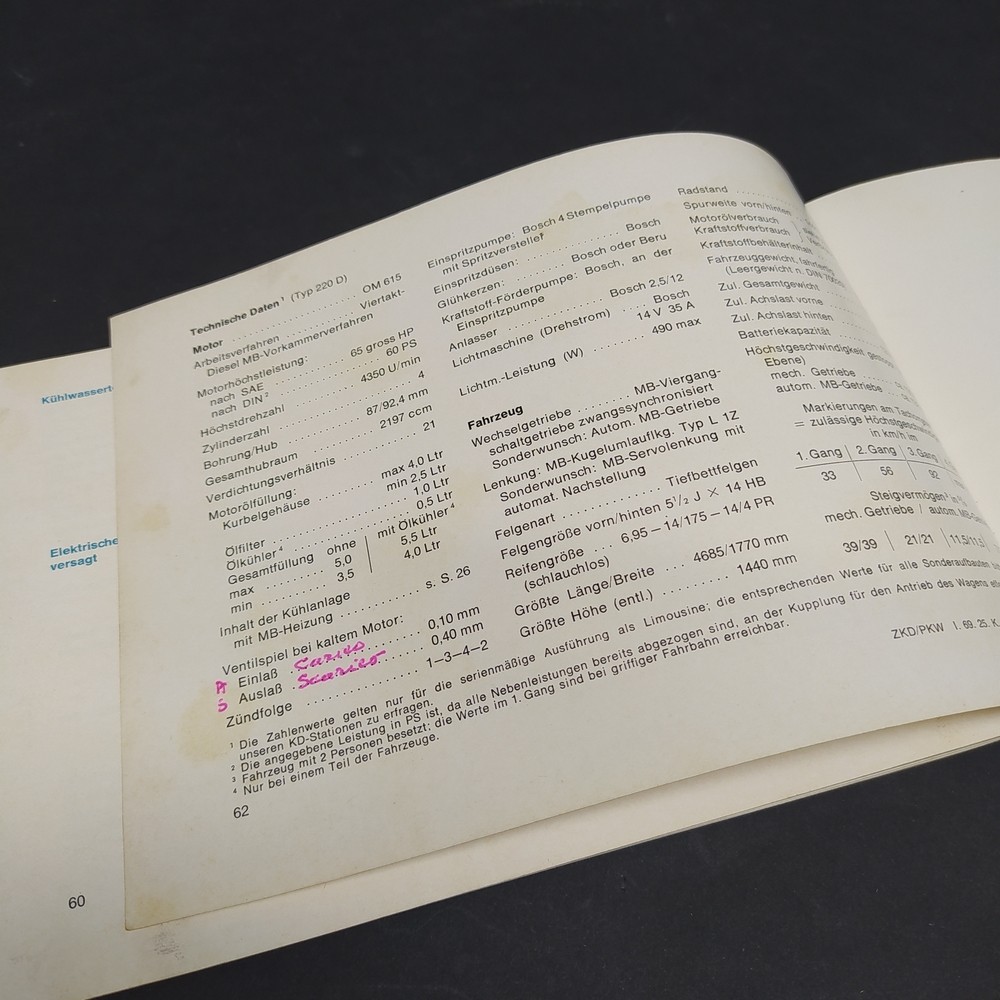 Kühlwassert
Elektrische
versagt
60
Technische Daten¹ (Typ 220 D)
Motor ........ OM 615
Arbeitsverfahren ........ Viertakt-
Diesel MB-Vorkammerverfahren
Motorhöchstleistung:
nach SAE ........ 65 gross HP
nach DIN² ........ 60 PS
Höchstdrehzahl ........ 4350 U/min
Zylinderzahl ........ 4
Bohrung/Hub ........ 87/92,4 mm
Gesamthubraum ........ 2197 ccm
Verdichtungsverhältnis ........ 21
Motorölfüllung:
Kurbelgehäuse ........ max 4,0 Ltr
min 2,5 Ltr
Ölfilter ........ 1,0 Ltr
Ölkühler⁴ ........ 0,5 Ltr
Gesamtfüllung ohne | mit Ölkühler⁴
max ........ 5,0 | 5,5 Ltr
min ........ 3,5 | 4,0 Ltr
Inhalt der Kühlanlage
mit MB-Heizung ........ s. S. 26
Ventilspiel bei kaltem Motor:
A Einlaß ........ 0,10 mm
S Auslaß Scarico ........ 0,40 mm
Zündfolge ........ 1–3–4–2
Einspritzpumpe: Bosch 4 Stempelpumpe
mit Spritzversteller
Einspritzdüsen: ........ Bosch
Glühkerzen: ........ Bosch oder Beru
Kraftstoff-Förderpumpe: Bosch, an der
Einspritzpumpe
Anlasser ........ Bosch 2,5/12
Lichtmaschine (Drehstrom) ........ Bosch
14 V 35 A
Lichtm.-Leistung (W) ........ 490 max
Fahrzeug
Wechselgetriebe ........ MB-Viergang-
schaltgetriebe zwangssynchronisiert
Sonderwunsch: Autom. MB-Getriebe
Lenkung: MB-Kugelumlauflkg. Typ L 1Z
Sonderwunsch: MB-Servolenkung mit
automat. Nachstellung
Felgenart ........ Tiefbettfelgen
Felgengröße vorn/hinten 5½ J × 14 HB
Reifengröße ... 6,95–14/175–14/4 PR
(schlauchlos)
Größte Länge/Breite ... 4685/1770 mm
Größte Höhe (entl.) ........ 1440 mm
Radstand ........
Spurweite vorn/hinten
Motorölverbrauch
Kraftstoffverbrauch
Kraftstoffbehälterinhalt
Fahrzeuggewicht, fahrfertig
(Leergewicht n. DIN
Zul. Gesamtgewicht
Zul. Achslast vorne
Zul. Achslast hinten
Batteriekapazität
Höchstgeschwindigkeit
Ebene)
mech. Getriebe
autom. MB-Getriebe
Markierungen am
= zulässige
in km/h im
1. Gang | 2. Gang | 3. Gang
33 | 56 | 92
Steigvermögen³ in
mech. Getriebe / autom.
39/39 | 21/21 | 11,5/11,5
¹ Die Zahlenwerte gelten nur für die serienmäßige Ausführung als Limousine; die entsprechenden Werte für alle Sonderaufbauten
unseren KD-Stationen zu erfragen.
² Die angegebene Leistung in PS ist, da alle Nebenleistungen bereits abgezogen sind, an der Kupplung für den Antrieb des Wagens
³ Fahrzeug mit 2 Personen besetzt; die Werte im 1. Gang sind bei griffiger Fahrbahn erreichbar.
⁴ Nur bei einem Teil der Fahrzeuge.
62
ZKD/PKW I. 69. 25. K.